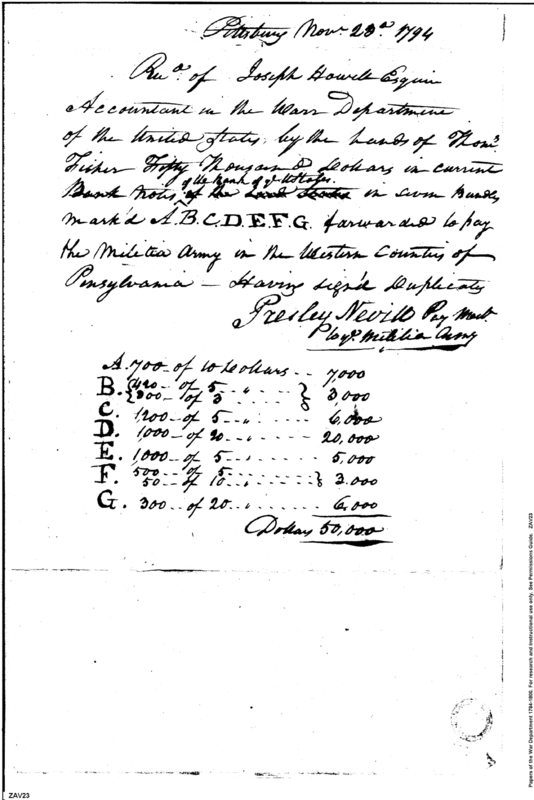 Pittsburg Novr 23d 1794
Recd of Joseph Howell Esquire
Accountant in the Warr Department
of the United States, by the hands of Thoms
Fisher Fifty Thousand Dollars in current
of the Bank of ye U States
Bank Notes of the in seven Bundles
mark'd A.B.C.D.E.F.G. forwarded to pay
the Militia Army in the Western Counties of
Pensylvania — Having sign'd Duplicates
Presley Nevill Pay Mastr
Militia Army
A. 700 - of 10 Dollars - - 7,000
B. { 420 - of 5 - " - - } 3,000
{ 300 - of 3 - - - }
C. 1,200 - of 5 - - " - - 6,000
D. 1000 - of 20 - - " - - 20,000
E. 1,000 - of 5 - - " - - 5,000
F. 500 - of 5 - - - } 3,000
50 - of 10 - " - - }
G. 300 - of 20 - " - - 6,000
Dollars 50,000
Papers of the War Department 1784-1800. For research and instructional use only. See Permissions Guide. ZAV23
ZAV23